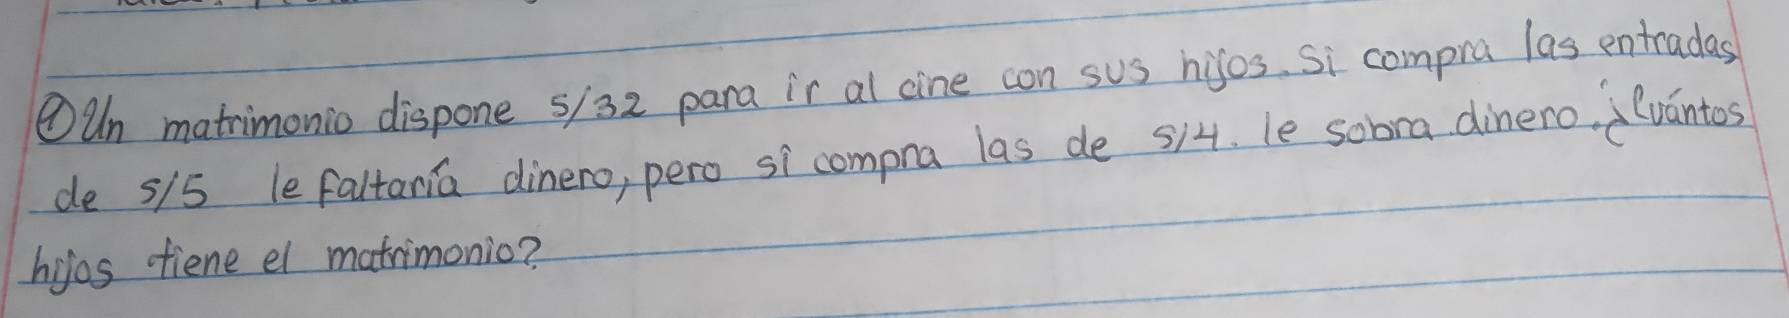 ① Un matrimonio dispone s/32 para ir al cine con sus hijos. Si compra las entradas
de s/5 le faltaría dinero, pero si compra las de s/4. le sobra dinero. ¿Cuántos
hijos tiene el matrimonio?